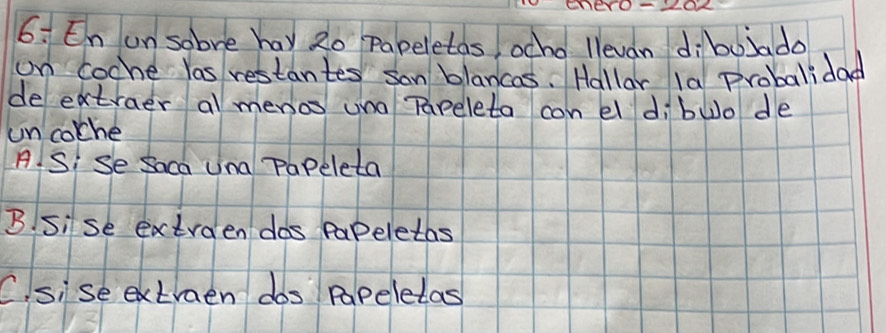 enero - 202
6- En un sobre hay 20 Papeletas, ocho llevan dibujado
un coche las restantes son blancas. Hallar la Probalidad
de extraer al menos una Papeleta con el dibujo de
un coche
A. Si se saca una Papeleta
B. Si se extraen dos Papeletas
C. si se extraen dos Papeletas